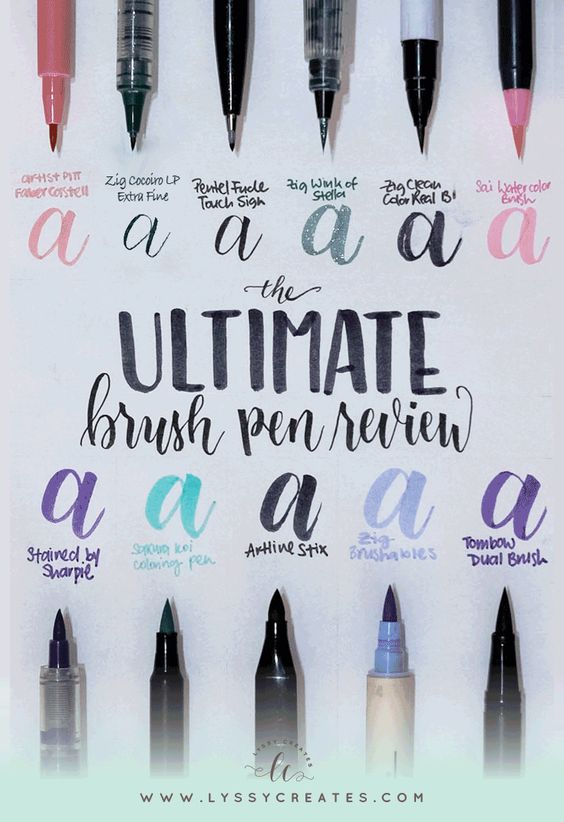 artist PITT
Faber Casstell
a
Zig Cocoiro LP
Extra Fine
a
Pentel Fude
Touch Sign
a
Zig Wink of
Stella
a
Zig Clean
Color Real B
a
Sai Watercolor
Brush
a
the
ULTIMATE
brush pen review
a
Stained by
Sharpie
a
Sakura koi
coloring pen
a
Artline Stix
a
Zig
Brushables
a
Tombow
Dual Brush
LYSSY CREATES
lc
WWW.LYSSYCREATES.COM